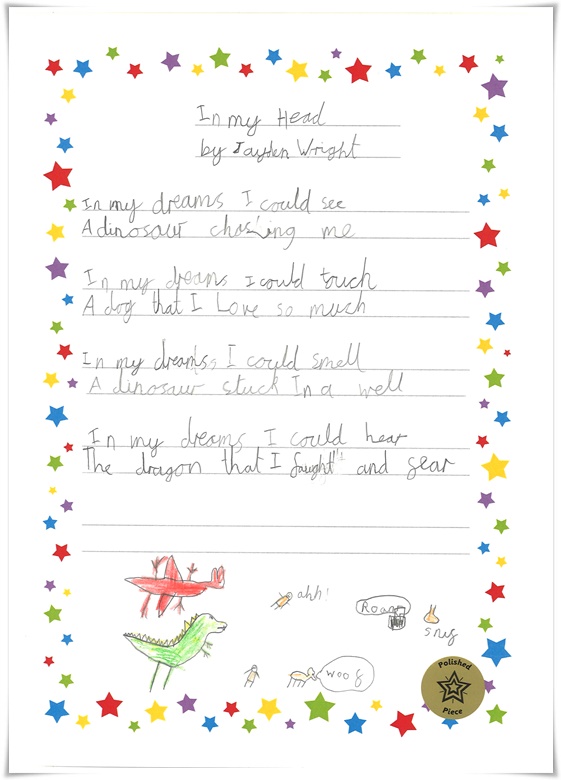 In my Head
by Jayden Wright
In my dreams I could see
A dinosaur chasing me
In my dreams I could touch
A dog that I Love so much
In my dreams, I could smell
A dinosaur stuck In a well
In my dreams I could hear
The dragon that I faught and gear
ahh!
Roar
snif
woof
Polished
Piece